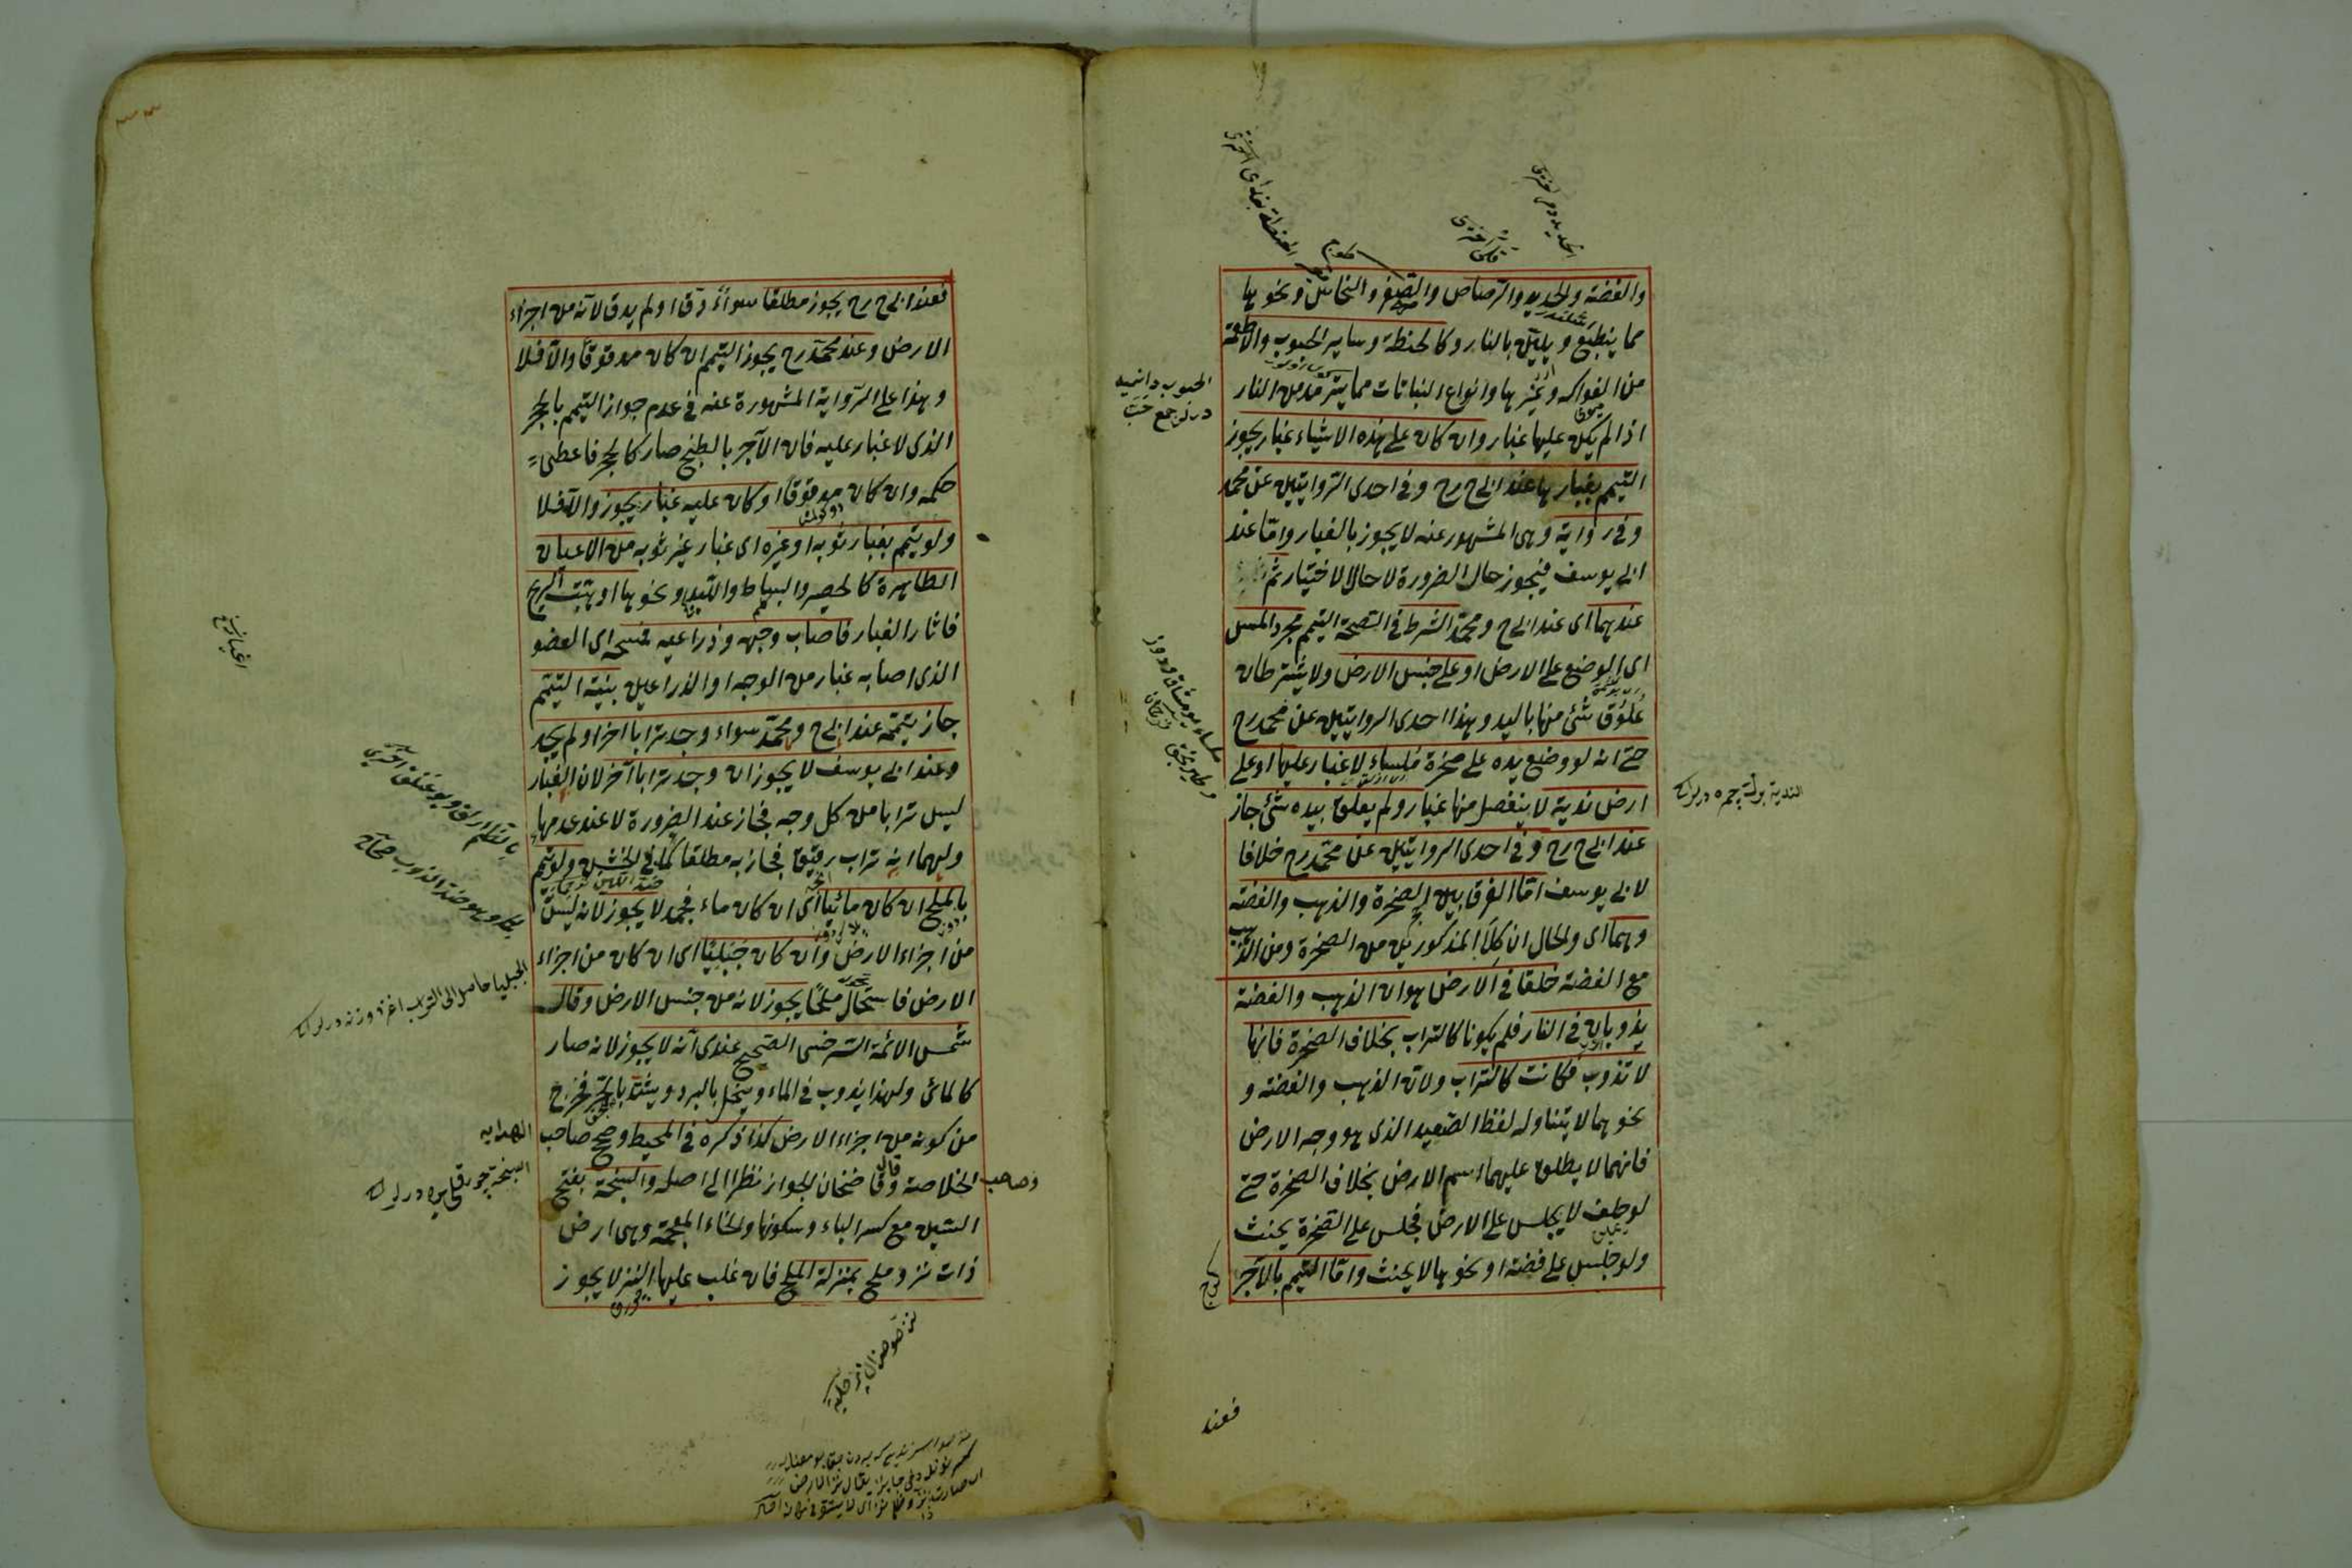 والفضة والحديد والرصاص والصفر والنحاس ونحوها
مما ينطبع ويلين بالنار وكالحنطة وساير الحبوب والاطعمة
من الفواكه وغيرها وانواع النباتات مما يترمد من النار
اذا لم يكن عليها غبار وان كان على هذه الاشياء غبار يجوز
التيمم بغبارها عند ابى ح رح وفى احدى الروايتين عن محمد
وفى رواية وهى المشهور عنه لا يجوز بالغبار واما عند
ابى يوسف فيجوز حال الضرورة لا حال الاختيار ثم
عندهما اى عند ابى ح ومحمد الشرط فى الصحة التيمم مجرد المس
اى الوضع على الارض او على جنس الارض ولا يشترطان
علوق شئ منها باليد وهذا احدى الروايتين عن محمد رح
حتى انه لو وضع يده على صخرة ملساء لا غبار عليها او على
ارض ندية لا ينفصل منها غبار ولم يعلق بيده شئ جاز
عند ابى ح رح وفى احدى الروايتين عن محمد رح خلافا
لابى يوسف اما الفرق بين الصخرة والذهب والفضة
وهما اى والحال ان كلا المذكورين من الصخرة ومن الذهب
مع الفضة خلقا فى الارض هو ان الذهب والفضة
يذوبان فى النار فلم يكونا كالتراب بخلاف الصخرة فانها
لا تذوب فكانت كالتراب ولان الذهب والفضة و
نحوهما لا يتناوله لفظ الصعيد الذى هو وجه الارض
فانهما لا يطلق عليهما اسم الارض بخلاف الصخرة حتى
لو حلف لا يجلس على الارض فجلس على الصخرة يحنث
ولو جلس على فضة او نحوها لا يحنث واما التيمم بالآجر
فعند
الحبوب دانه
در لر جمع حب
فعند ابى ح رح يجوز مطلقا سواء دق او لم يدق لانه من اجزاء
الارض وعند محمد رح يجوز التيمم ان كان مدقوقا والا فلا
وهذا على الرواية المشهورة عنه فى عدم جواز التيمم بالحجر
الذى لا غبار عليه فان الآجر بالطبخ صار كالحجر فاعطى
حكمه وان كان مدقوقا او كان عليه غبار يجوز والا فلا
ولو تيمم بغبار ثوبه او غيره اى غبار غير ثوبه من الاعيان
الطاهرة كالحصير والبساط واللبد ونحوها او هبت الريح
فاثار الغبار فاصاب وجهه وذراعيه فمسحه اى العضو
الذى اصابه غبار من الوجه او الذراعين بنية التيمم
جاز تيممه عند ابى ح ومحمد سواء وجد ترابا اخر او لم يجد
وعند ابى يوسف لا يجوز ان وجد ترابا آخر لان الغبار
ليس ترابا من كل وجه فجاز عند الضرورة لا عند عدمها
ولهما انه تراب رقيق فجاز به مطلقا كما فى الخشن ولو تيمم
بالملح ان كان مائيا اى ان كان ماء فجمد لا يجوز لانه ليس
من اجزاء الارض وان كان جبليا اى ان كان من اجزاء
الارض فاستحال ملحا يجوز لانه من جنس الارض وقال
شمس الائمة السرخسى الصحيح عندى انه لا يجوز لانه صار
كالمائى ولهذا يذوب فى الماء وينحل بالبرد ويشتد بالحر فخرج
من كونه من اجزاء الارض كذا ذكره فى المحيط وصحح صاحب
الهداية
وصاحب الخلاصة وقال قاضخان الجواز نظرا الى اصله والسبخة بفتح
السين مع كسر الباء وسكونها والخاء المعجمة وهى ارض
ذات نز وملح بمنزلة الملح فان غلب عليها النز لا يجوز